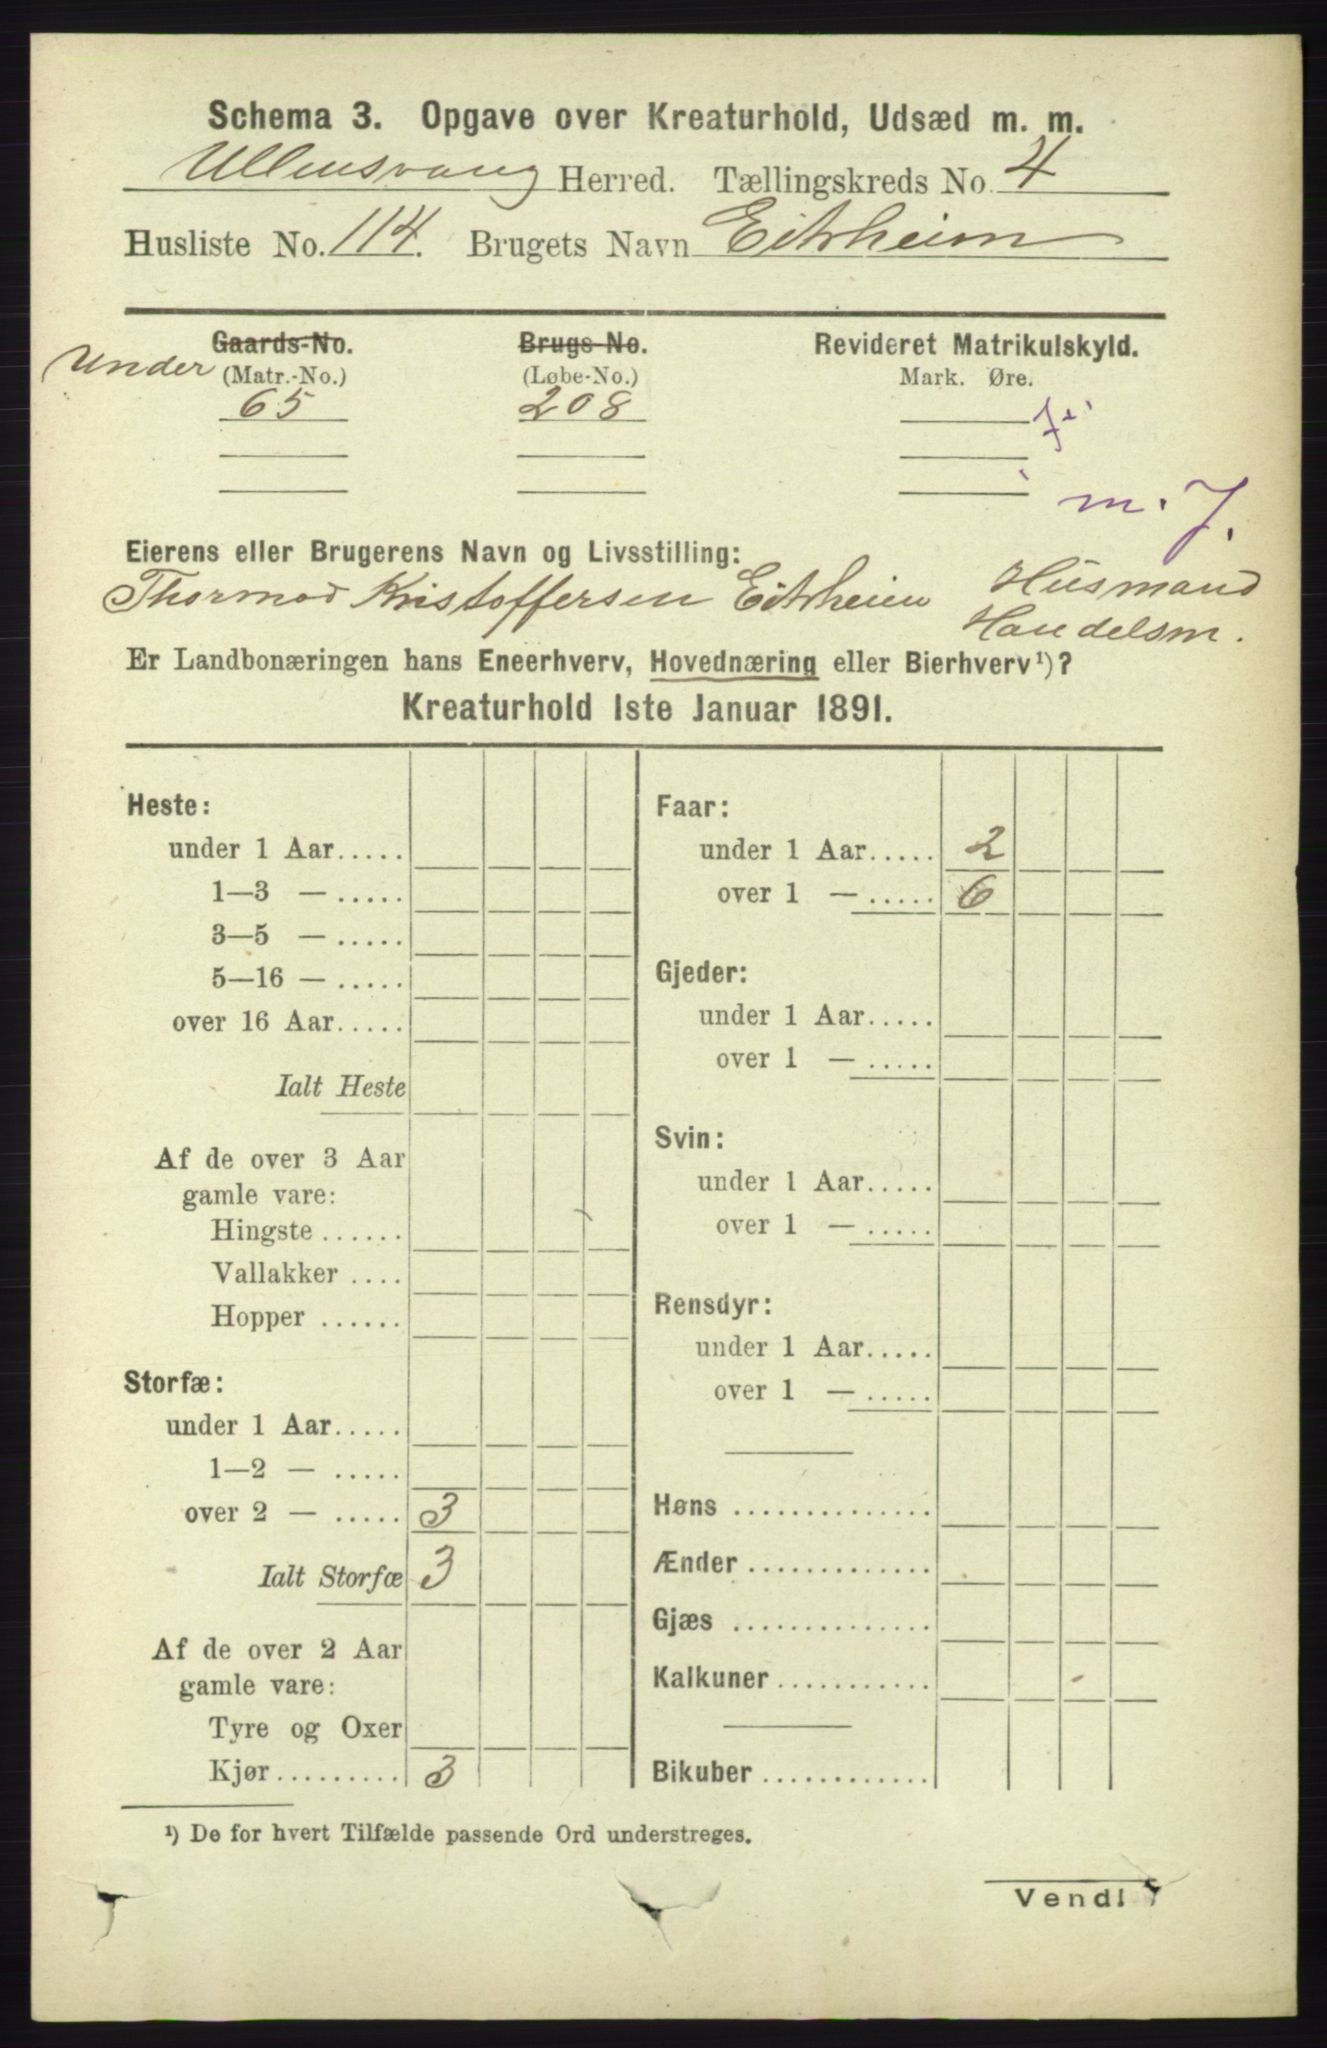 Schema 3. Opgave over Kreaturhold, Udsæd m. m.
Ullensvang Herred. Tællingskreds No. 4
Husliste No. 114. Brugets Navn Eitrheim
Gaards-No. Brugs-No. Revideret Matrikulskyld.
Under (Matr.-No.) (Løbe-No.) Mark. Øre.
65 208
m. J.
Eierens eller Brugerens Navn og Livsstilling:
Thormod Kristoffersen Eitrheim Husmand
Handelsm.
Er Landbonæringen hans Eneerhverv, Hovednæring eller Bierhverv¹)?
Kreaturhold 1ste Januar 1891.
Heste:
under 1 Aar.....
1—3 — .....
3—5 — .....
5—16 — .....
over 16 Aar.....
Ialt Heste
Af de over 3 Aar
gamle vare:
Hingste ......
Vallakker ....
Hopper ......
Storfæ:
under 1 Aar.....
1—2 — .....
over 2 — ..... 3
Ialt Storfæ 3
Af de over 2 Aar
gamle vare:
Tyre og Oxer
Kjør.......... 3
Faar:
under 1 Aar..... 2
over 1 — ..... 6
Gjeder:
under 1 Aar.....
over 1 — .....
Svin:
under 1 Aar.....
over 1 — .....
Rensdyr:
under 1 Aar.....
over 1 — .....
Høns ..............
Ænder .............
Gjæs ..............
Kalkuner ...........
Bikuber ............
¹) De for hvert Tilfælde passende Ord understreges.
Vend!